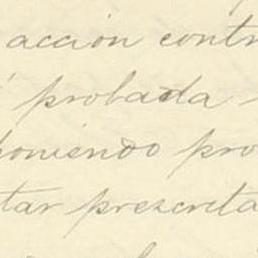 acción contr
probada
poniendo pro
tar prescrita